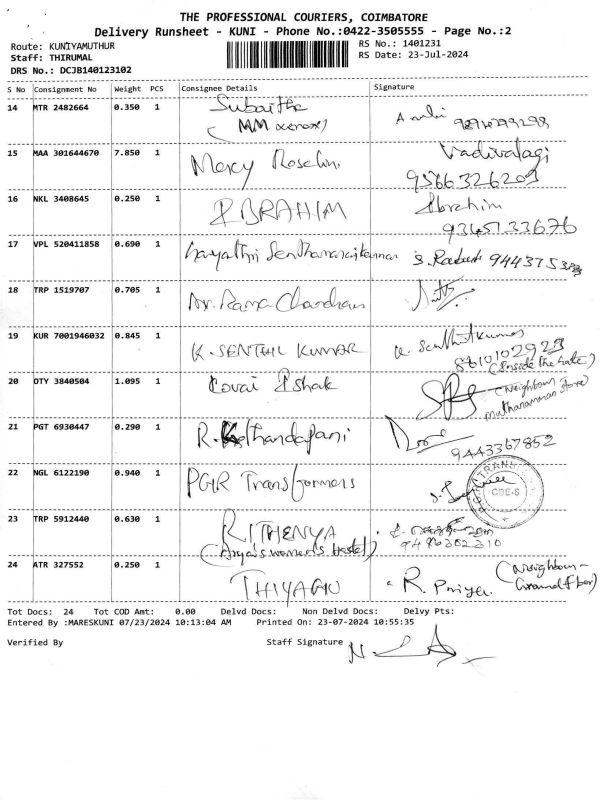 THE PROFESSIONAL COURIERS, COIMBATORE
Delivery Runsheet - KUNI - Phone No.:0422-3505555 - Page No.:2
Route: KUNIYAMUTHUR
RS No.: 1401231
Staff: THIRUMAL
RS Date: 23-Jul-2024
DRS No.: DCJB140123102
S No Consignment No Weight PCS Consignee Details Signature
14 MTR 2482664 0.350 1 Subaitha
(MM xerox)
15 MAA 301644670 7.850 1 Mercy Roselin. Vadivalagi
9566326203
16 NKL 3408645 0.250 1 IBRAHIM Ibrahim
9345133676
17 VPL 520411858 0.690 1
18 TRP 1519707 0.705 1 Rama Chandran
19 KUR 7001946032 0.845 1 K. SENTHIL KUMAR K. Senthilkumar
8610102923
(Inside the gate)
20 OTY 3840504 1.095 1 Kovai Ishak (Neighbour
Mutharamman Store)
21 PGT 6930447 0.290 1 R. Thandapani
9443367852
22 NGL 6122190 0.940 1 PGR Transformers
CBE-8
23 TRP 5912440 0.630 1 RITHENYA
(Arya's women's hostel)
24 ATR 327552 0.250 1 THIYAGU R. Priya (Neighbour-
Ground floor)
Tot Docs: 24 Tot COD Amt: 0.00 Delvd Docs: Non Delvd Docs: Delvy Pts:
Entered By :MARESKUNI 07/23/2024 10:13:04 AM Printed On: 23-07-2024 10:55:35
Verified By Staff Signature